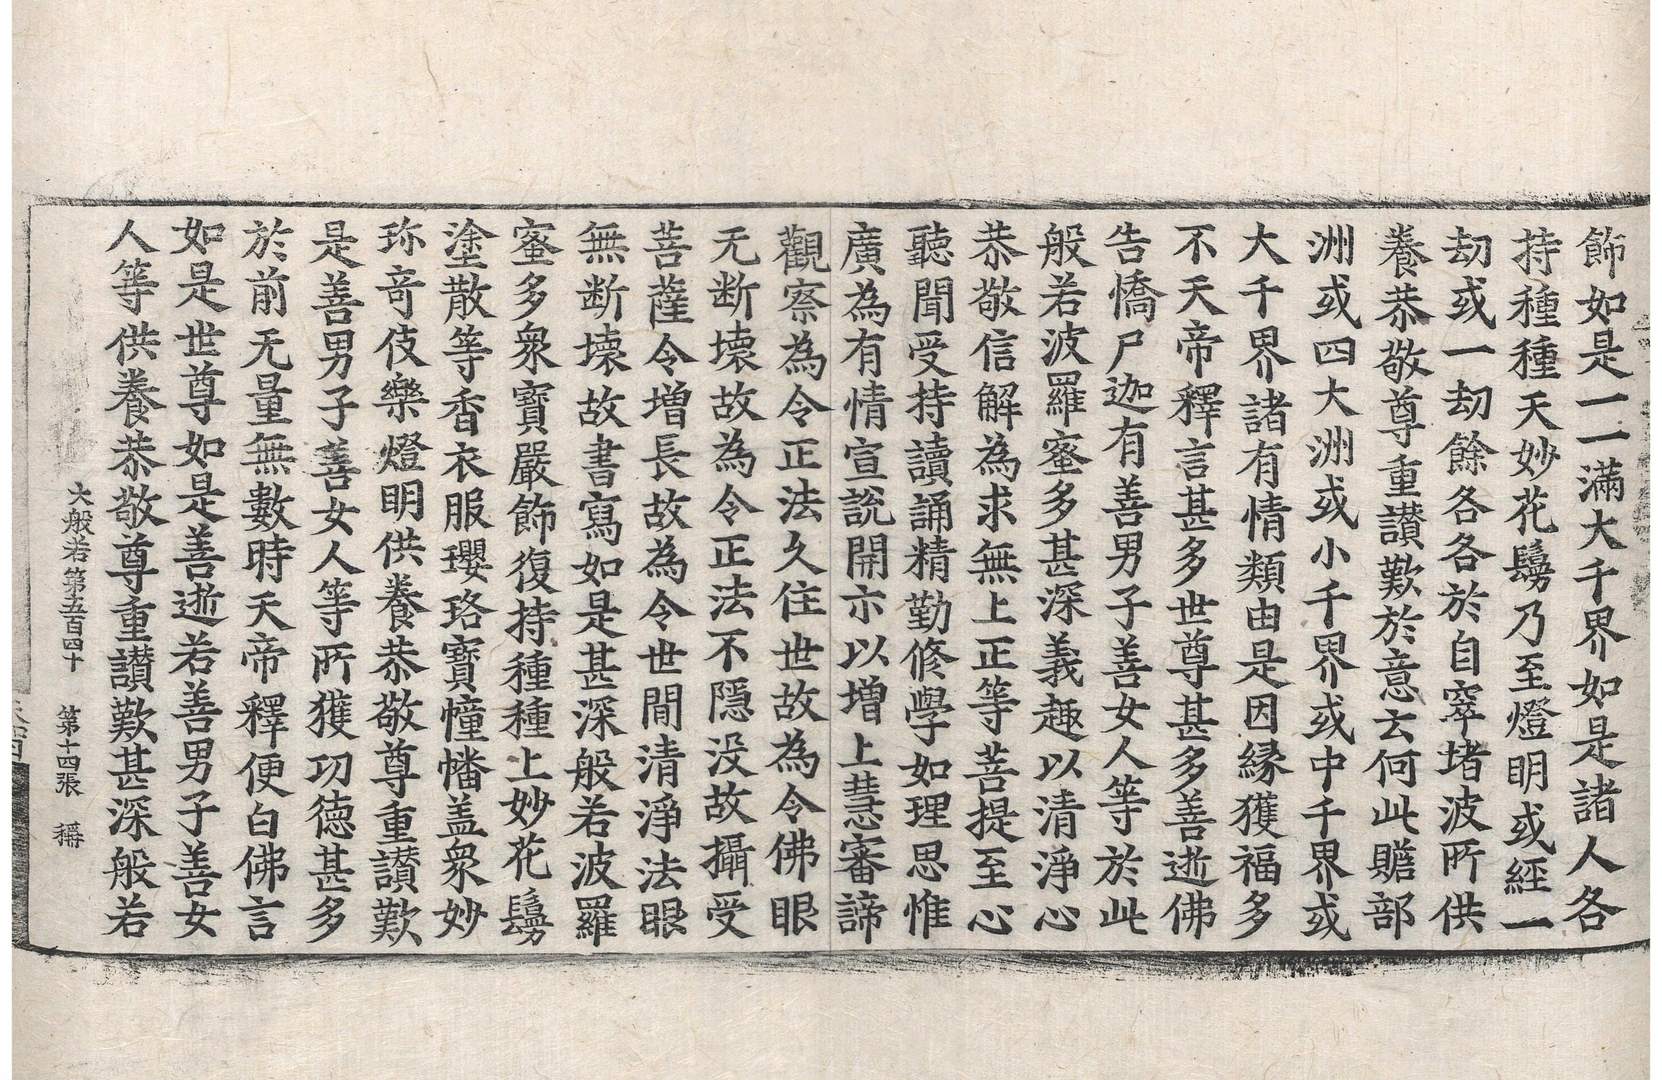 飾如是一一滿大千界如是諸人各
持種種天妙花鬘乃至燈明或經一
劫或一劫餘各各於自窣堵波所供
養恭敬尊重讃歎於意云何此贍部
洲或四大洲或小千界或中千界或
大千界諸有情類由是因縁獲福多
不天帝釋言甚多世尊甚多善逝佛
告憍尸迦有善男子善女人等於此
般若波羅蜜多甚深義趣以清淨心
恭敬信解為求無上正等菩提至心
聽聞受持讀誦精勤修學如理思惟
廣為有情宣說開示以增上慧審諦
觀察為令正法久住世故為令佛眼
无断壞故為令正法不隱没故攝受
菩薩令增長故為令世間清淨法眼
無断壞故書寫如是甚深般若波羅
蜜多衆寶嚴飾復持種種上妙花鬘
塗散等香衣服瓔珞寶幢幡盖衆妙
珎奇伎樂燈明供養恭敬尊重讃歎
是善男子善女人等所獲功德甚多
於前无量無數時天帝釋便白佛言
如是世尊如是善逝若善男子善女
人等供養恭敬尊重讃歎甚深般若
大般若第五百四十 第十四張 稱